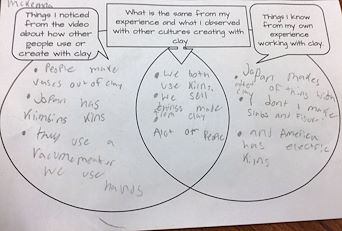 McKenna
Things I noticed
from the video
about how other
people use or
create with clay.
What is the same from my
experience and what I observed
with other cultures creating with
clay
Things I know
from my own
experience
working with clay.
• People make
vases out of clay
• Japan has
kins
• they use a
we use
hands
• we both
use kilns.
• we sell
things made
from clay
Alot off People
• Japan makes
of thing with
clay
I dont make
slabs and
• and America
has electric
kins